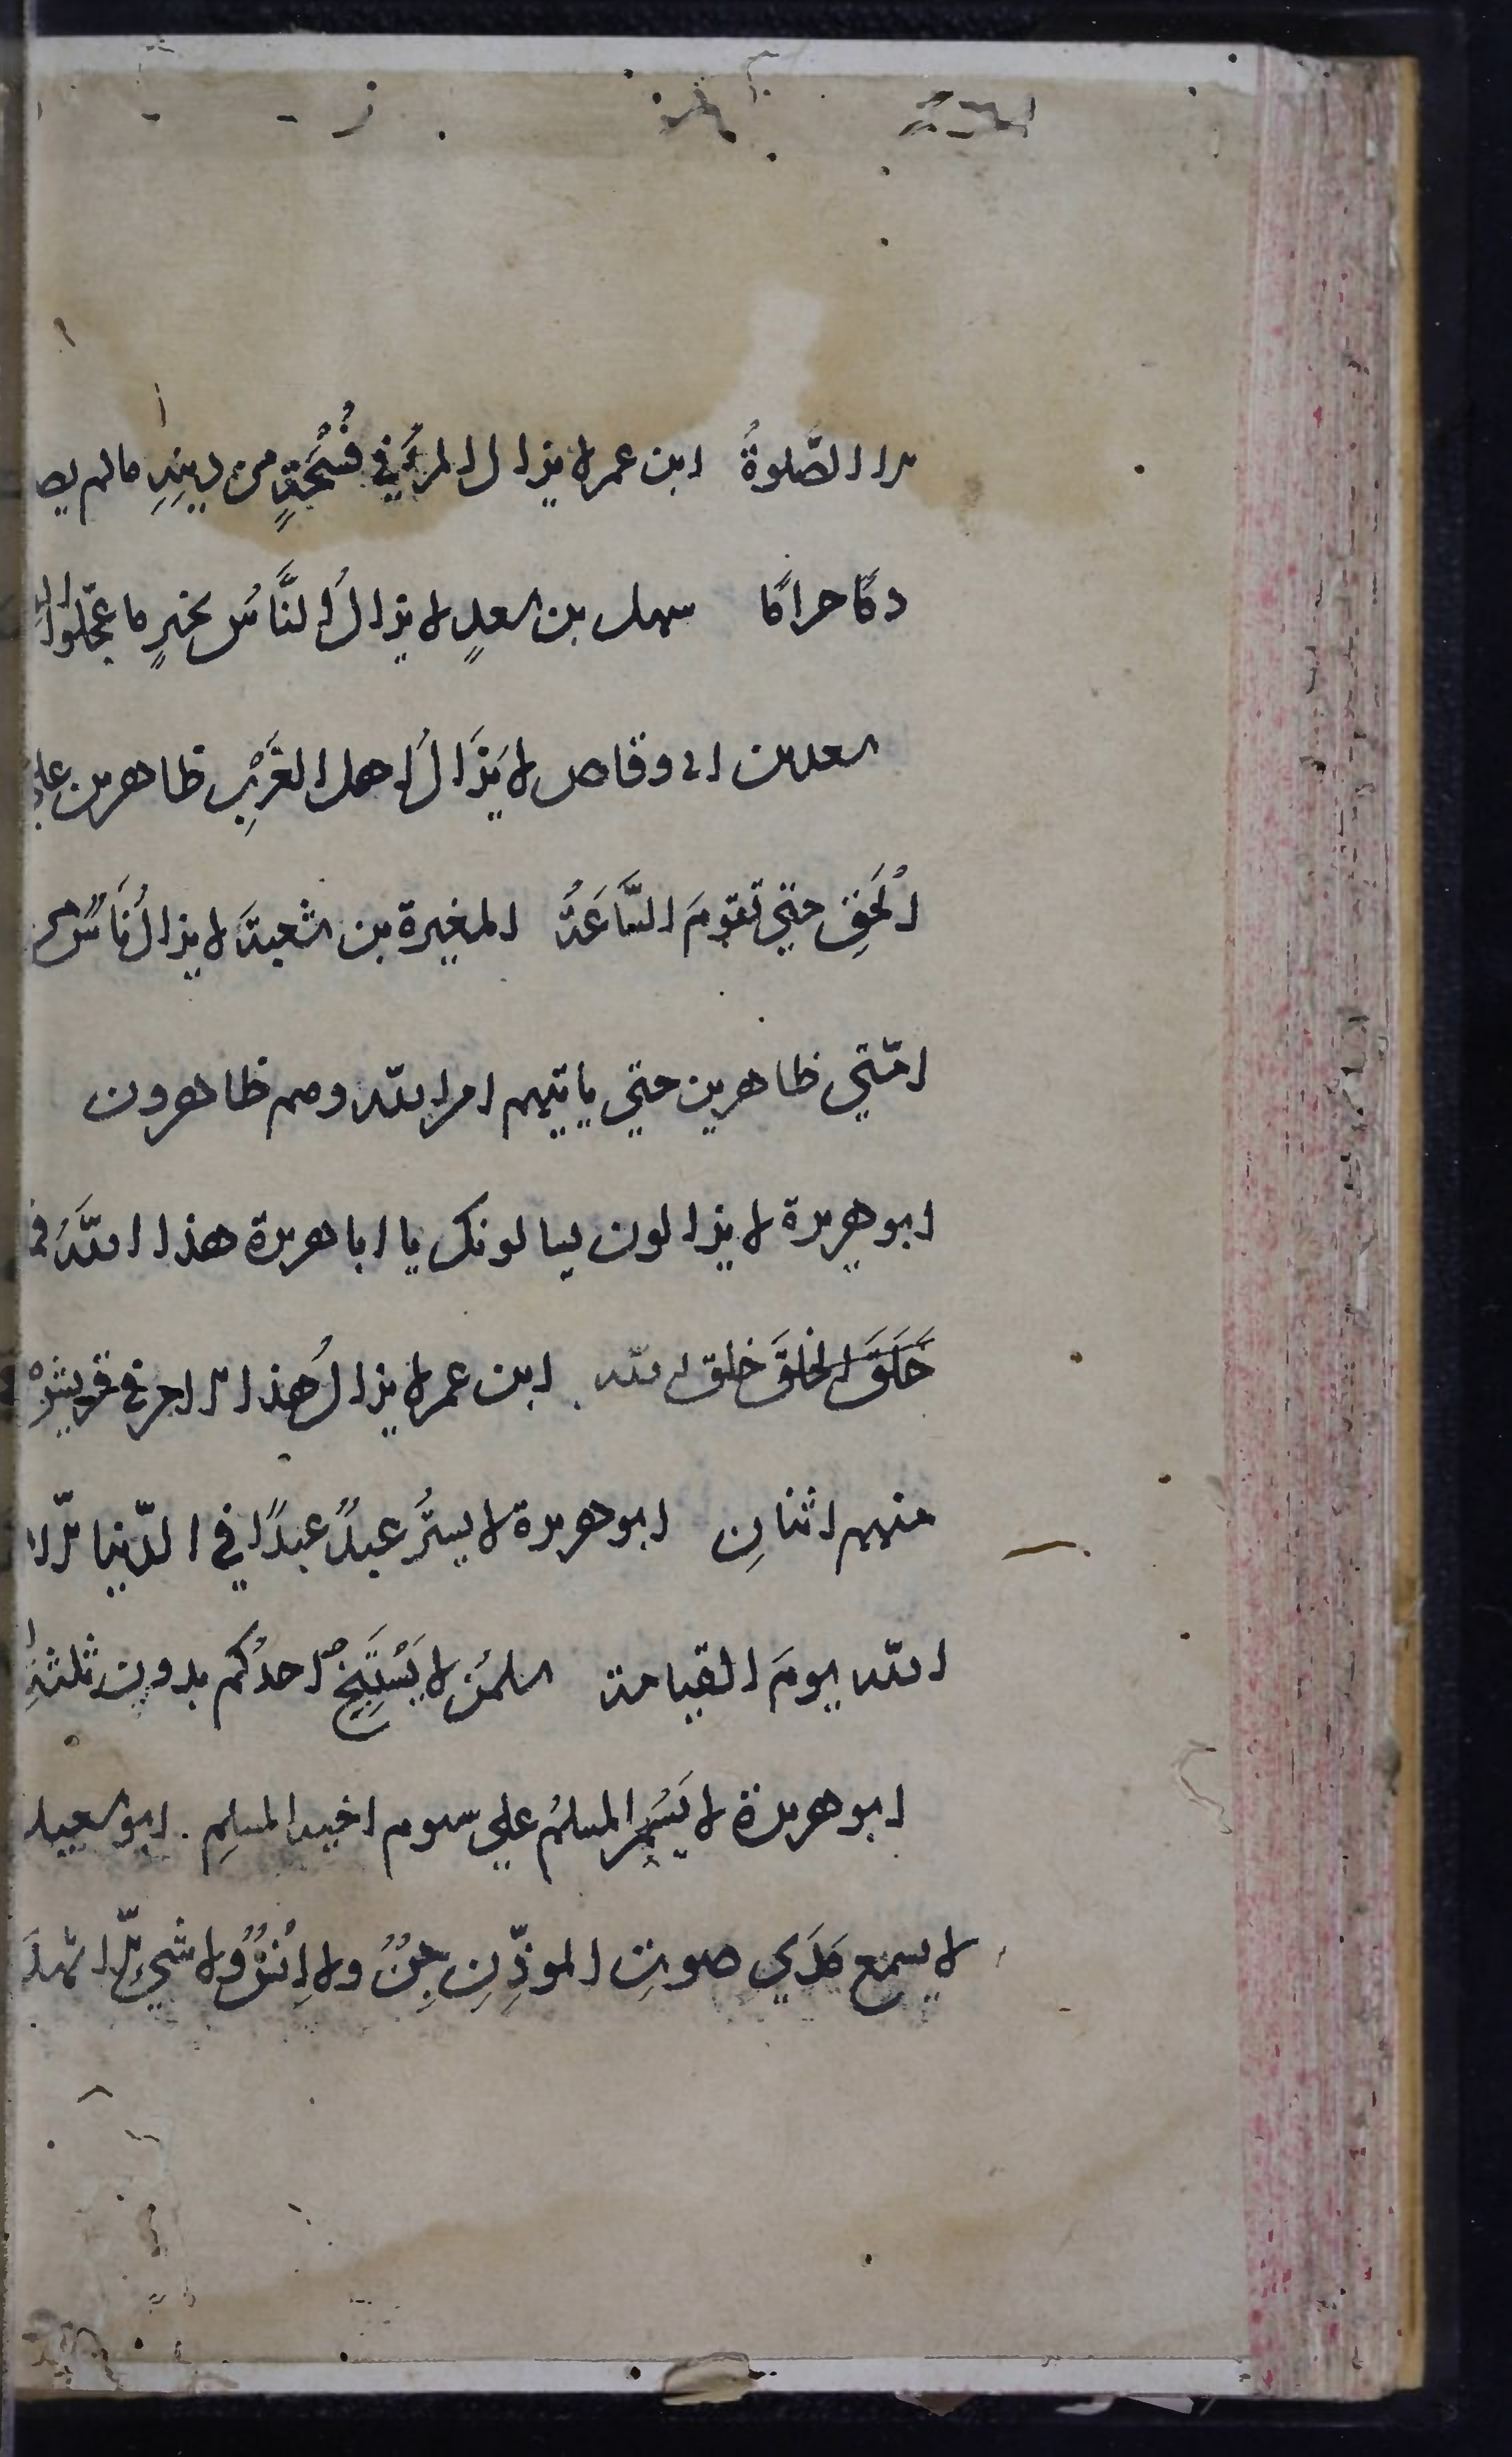 الا الصَّلوةُ ابن عمر لا يزال المرءُ في فُسْحَةٍ من دينِهِ مالم يصب
دمًا حرامًا سهل بن سعدٍ لا يزالُ النَّاسُ بخيرٍ ما عجّلوا
سعد بن ابي وقاص لا يَزَالُ اهل الغَرْبِ ظاهرين علي
الْحَقِ حتي تقومَ السَّاعَةُ المغيرة بن شعبةَ لا يزال نَاسٌ من
امّتي ظاهرين حتي ياتيهم امر الله وهم ظاهرون
ابو هريرة لا يزالون يسالونك يا ابا هريرة هذا اللّهُ
خَلَقَ الخلقَ خلق الله ابن عمر لا يزالُ هذا الامر في قريشٍ
منهم اثنانِ ابو هريرة لا يسترُ عبدٌ عبدًا في الدّنيا الّا
اللّه يومَ القيامة سلمٰن لا يَسْتَنْجِ احدُكم بدون ثلثةِ
ابو هريرة لا يَسُمِ المسلمُ علي سوم اخيه المسلِمِ ابو سعيد
لا يسمع مَدَي صوتِ الموذِّنِ جِنٌّ ولا اِنْسٌ ولا شَيْءٌ الّا شهدَ